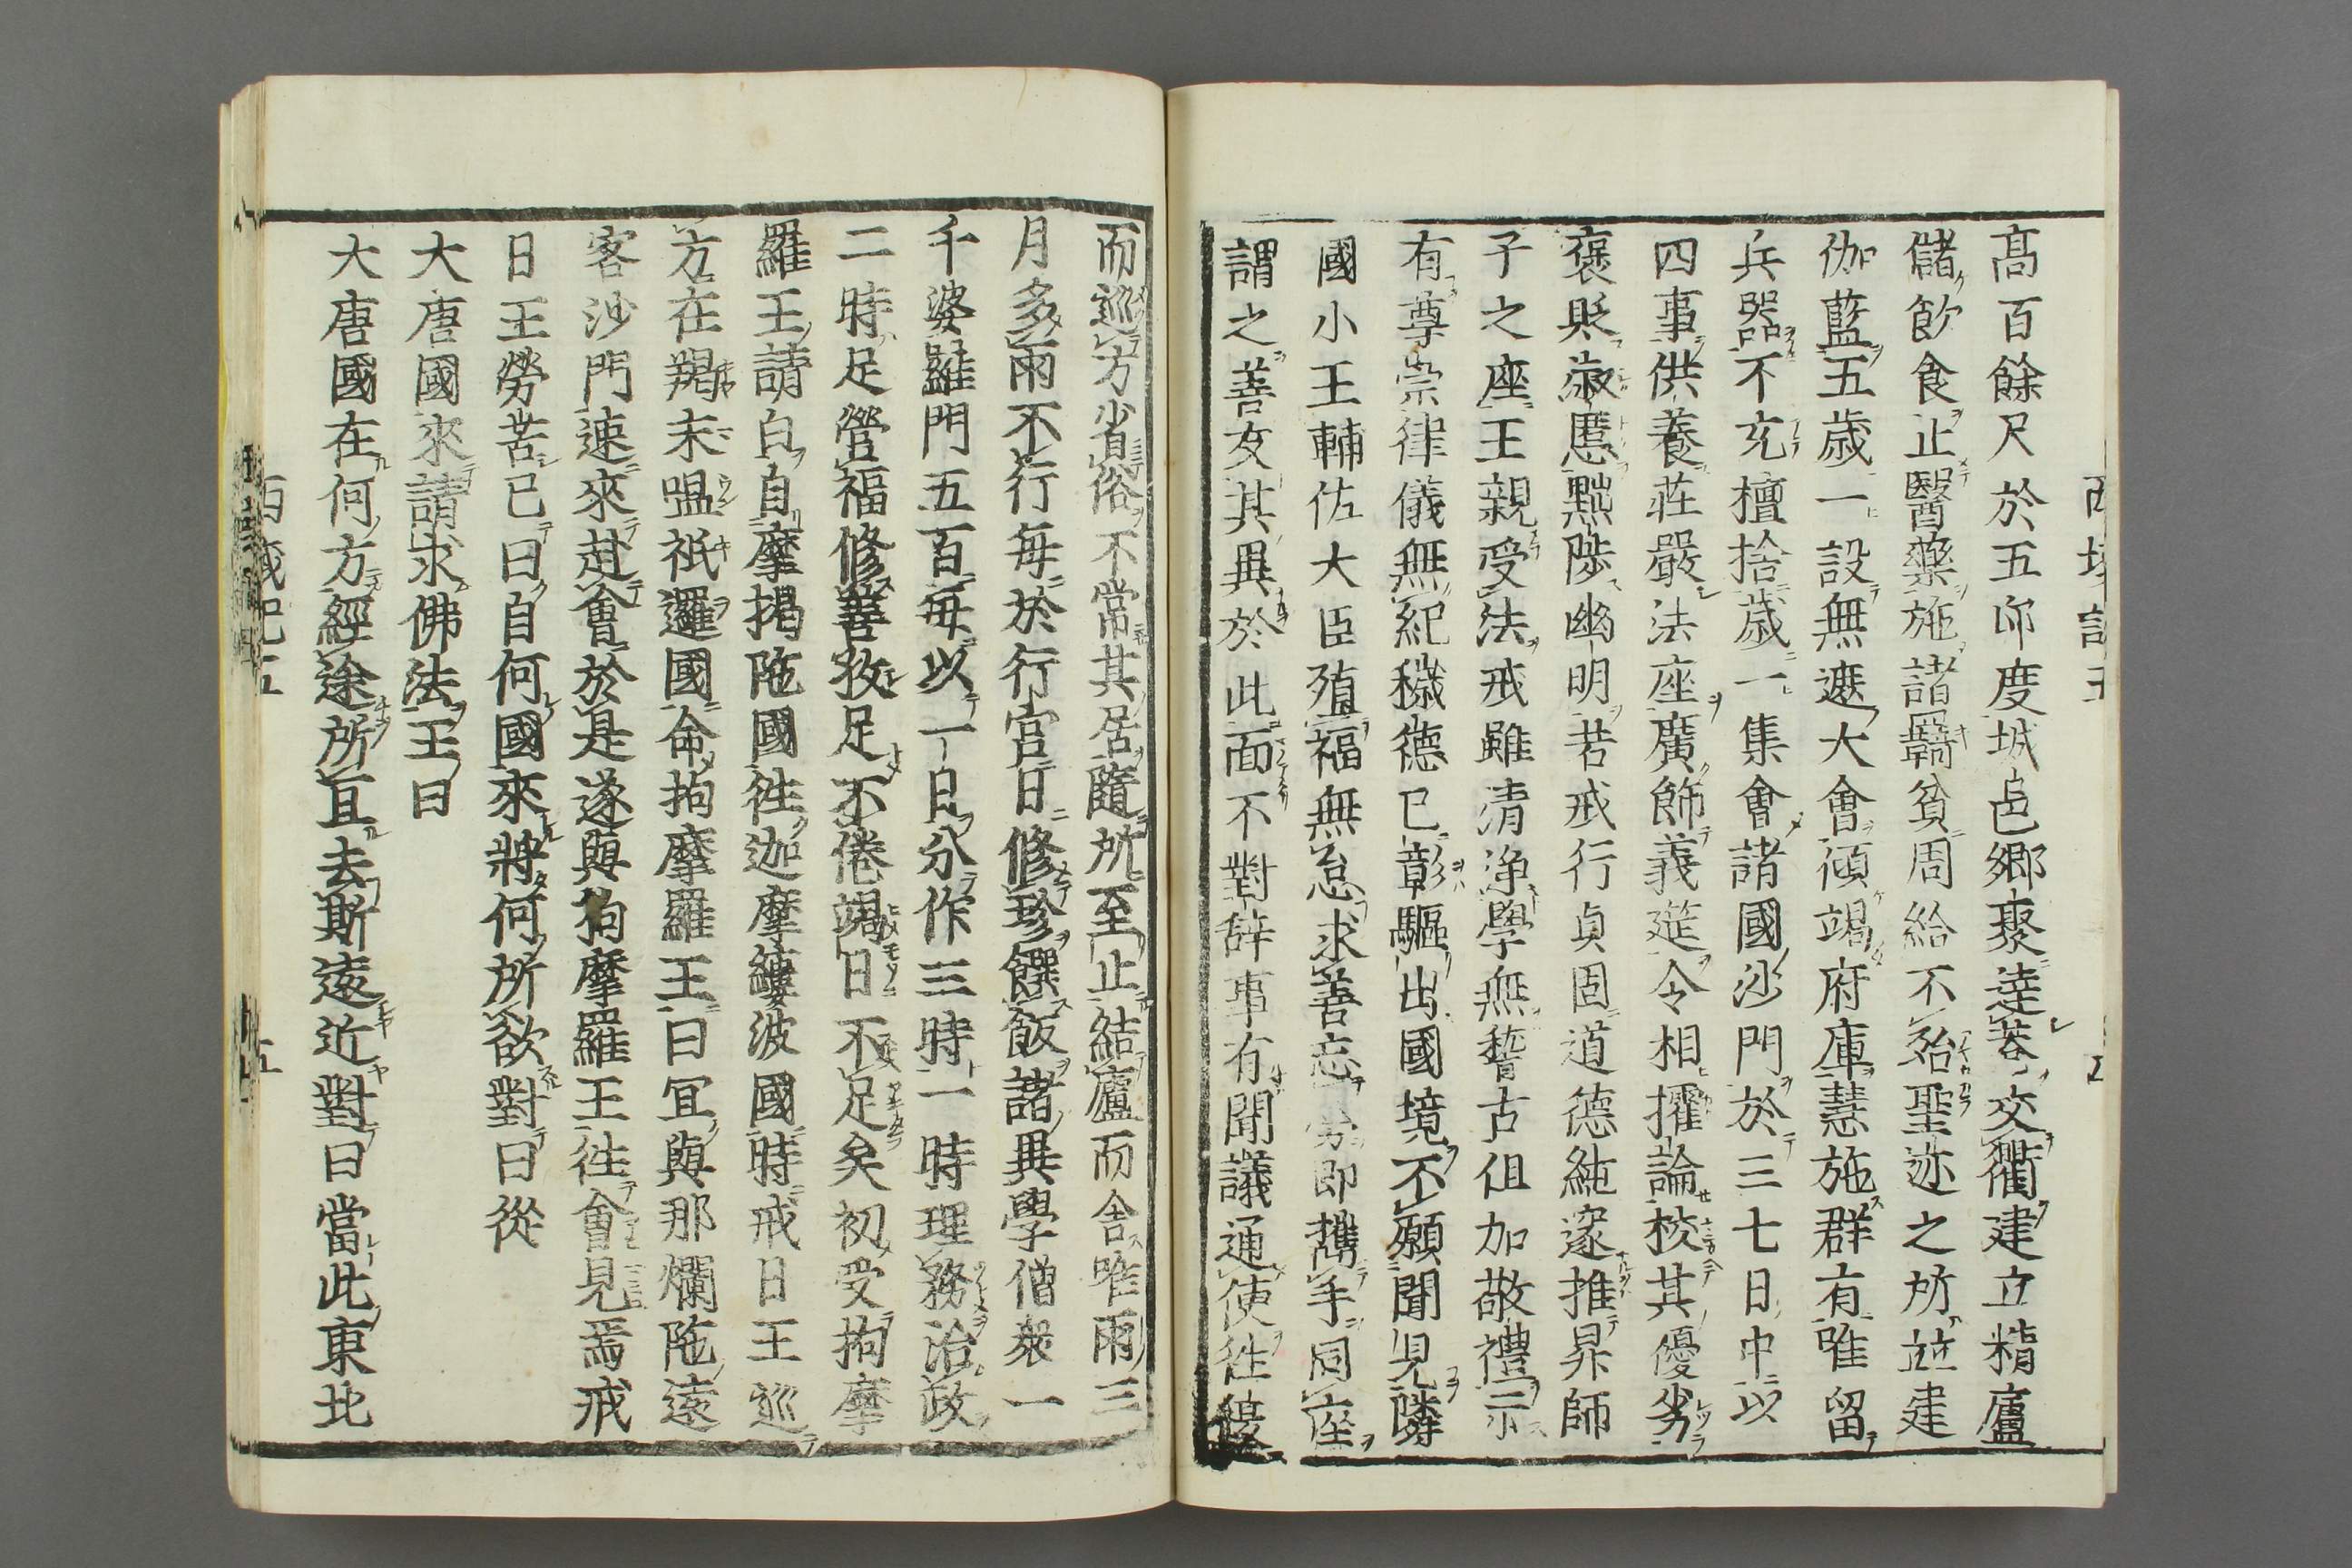 高百餘尺於五印度城邑鄉聚達巷交衢建立精廬
儲飲食止醫藥施諸羇貧周給不殆聖迹之所並建
伽藍五歲一設無遮大會傾竭府庫慧施群有唯留
兵器不充檀捨歲一集會諸國沙門於三七日中以
四事供養莊嚴法座廣飾義筵令相摧論挍其優劣
褒貶淑慝黜陟幽明若戒行貞固道德純邃推昇師
子之座王親受法戒雖清淨學無稽古但加敬禮示
有尊崇律儀無紀穢德已彰驅出國境不願聞見隣
國小王輔佐大臣殖福無怠求善忘勞即攜手同座
謂之善友其異於此面不對辞事有聞議通使往復
而巡方省俗不常其居隨所至止結廬而舍唯雨三
月多雨不行每於行宮日修珍饌飯諸異學僧衆一
千婆羅門五百每以一日分作三時一時理務治政
二時足營福修善孜足不倦竭日不足矣初受拘摩
羅王請白自摩揭陁國往迦摩縷波國時戒日王巡
方在羯朱嗢祇邏國命拘摩羅王曰宜與那爛陁遠
客沙門速來赴會於是遂與拘摩羅王往會見焉戒
日王勞苦已曰自何國來將何所欲對曰從
大唐國來請求佛法王曰
大唐國在何方經途所亘去斯遠近對曰當此東北
西域記五
五